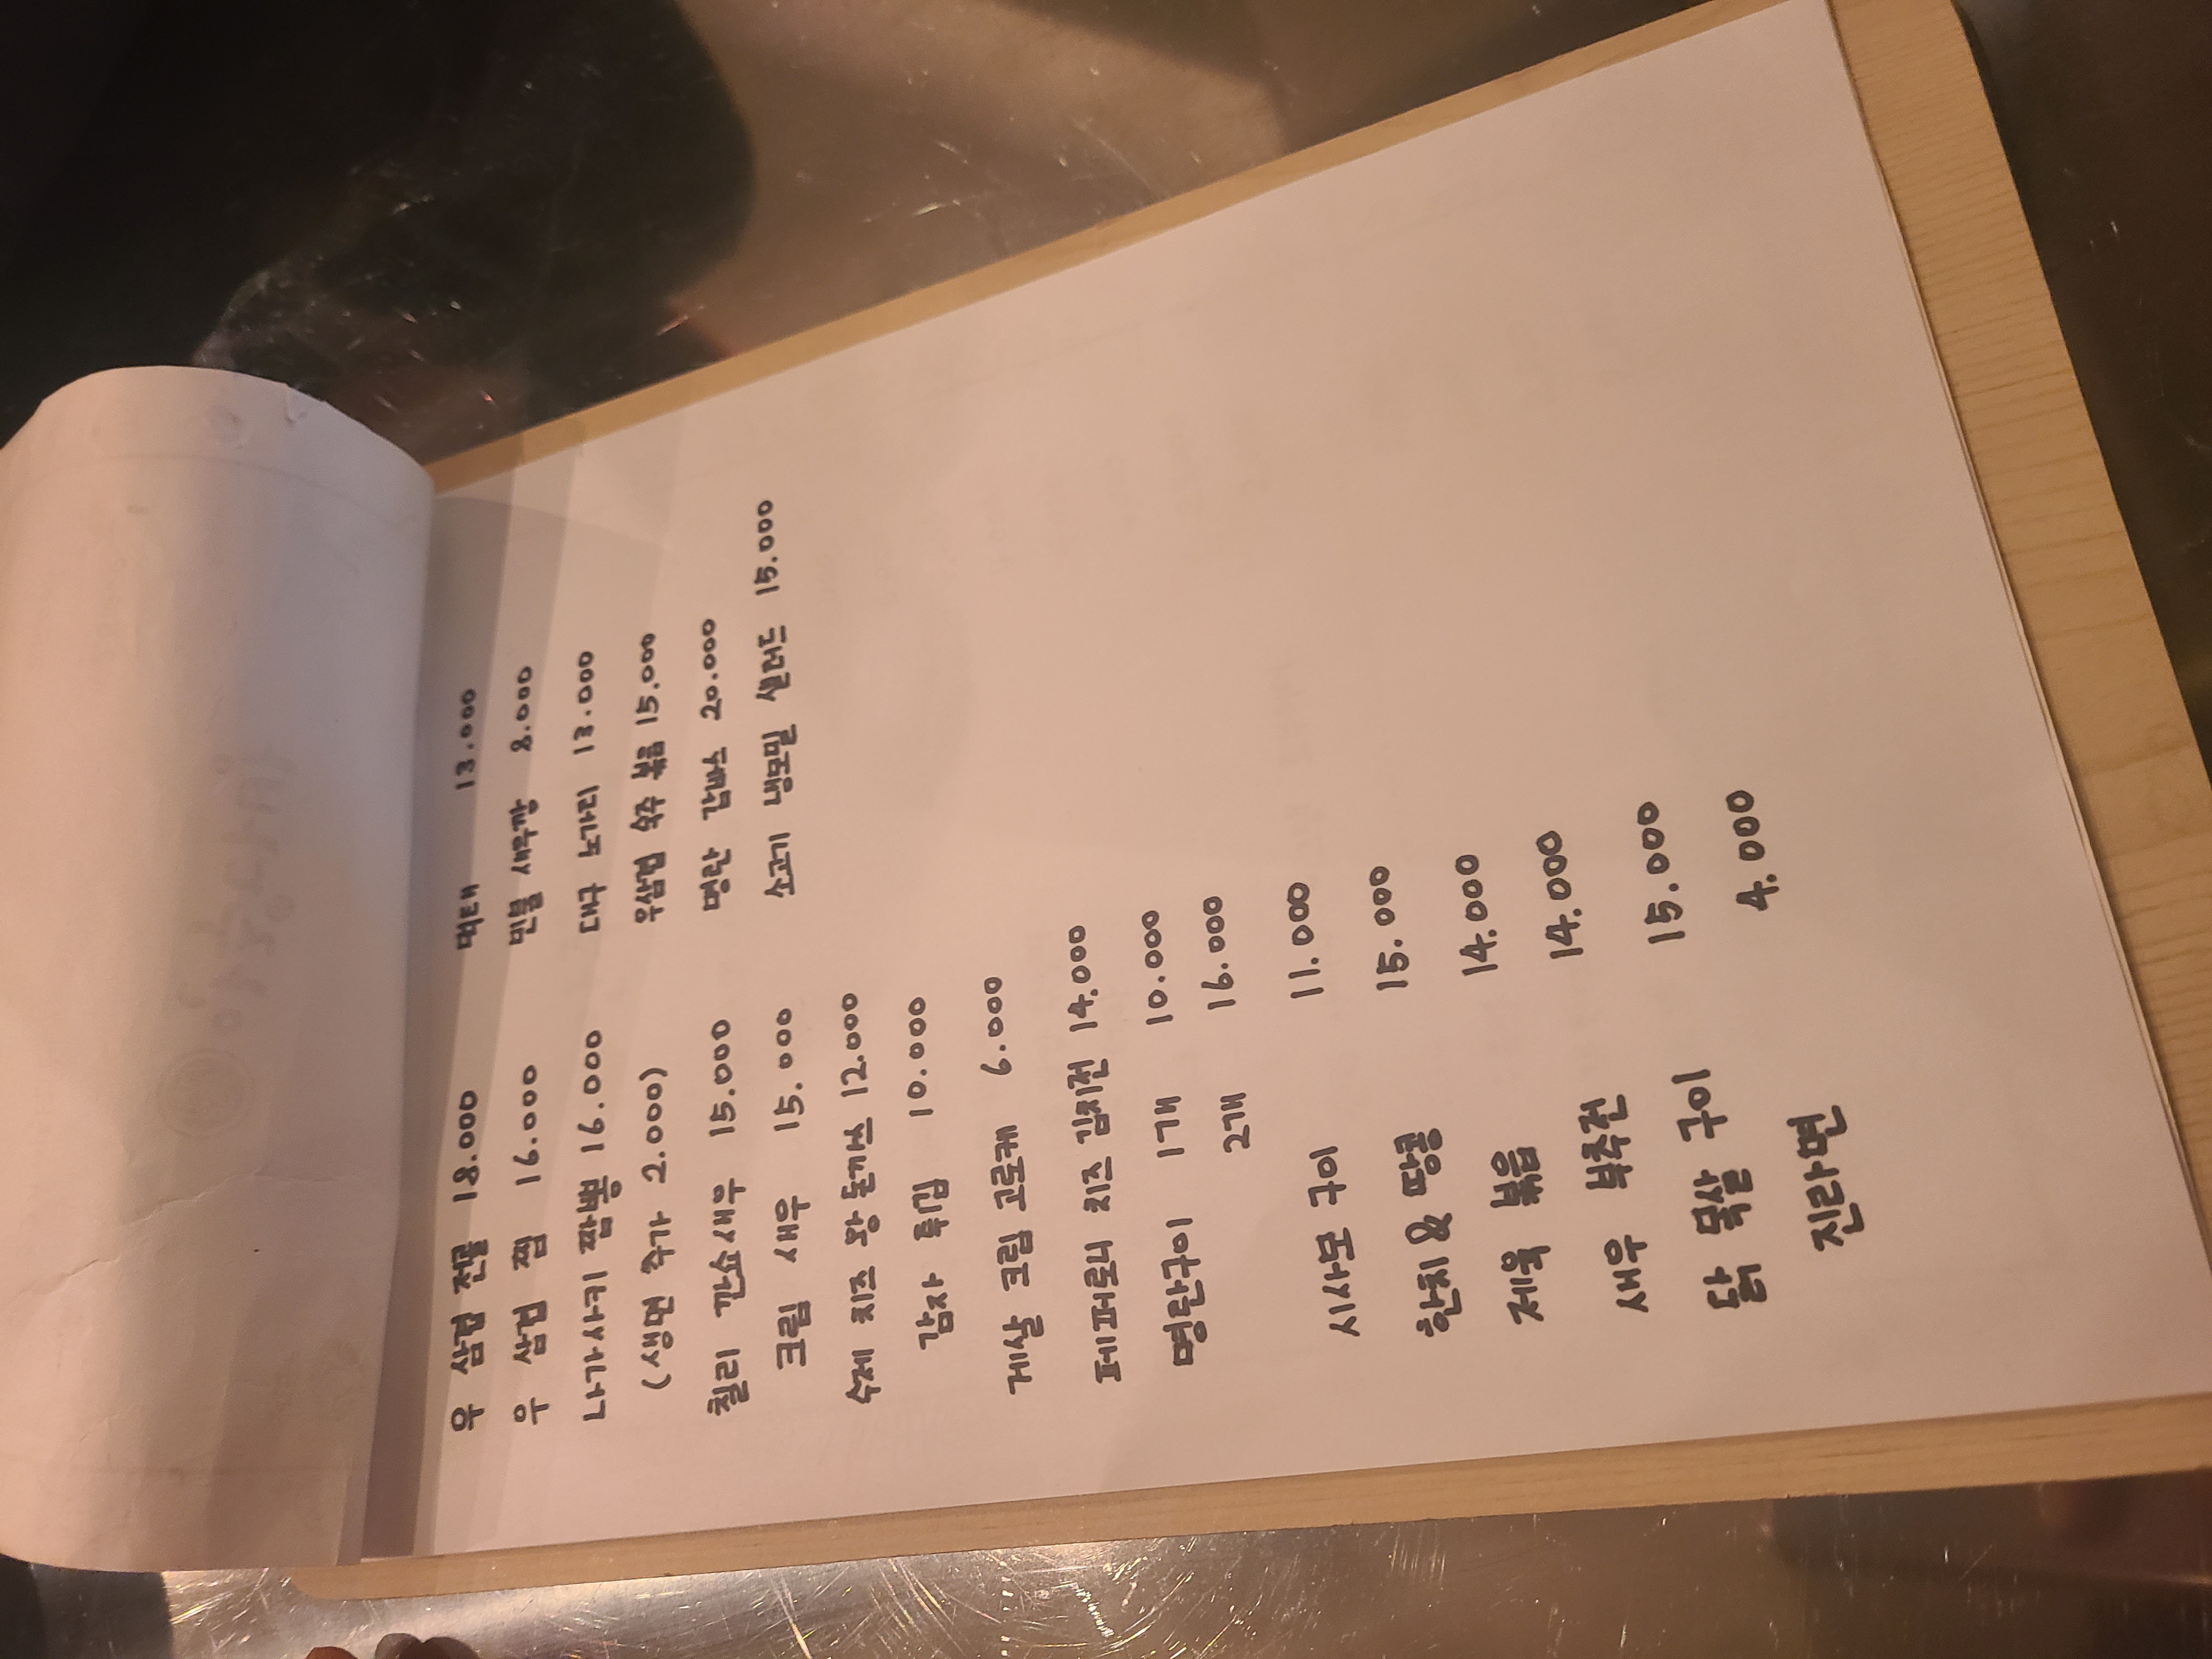 우 삼겹 전골 18.000 먹태 13.000
우 삼겹 찜 16.000 8.000
나가사끼 짬뽕 16.000 13.000
(생면 추가 2.000) 우삼겹 숙 15.000
칠리 깐쇼새우 15.000 20.000
크림 새우 15.000 소고기 15.000
수제 치즈 왕 돈까스 12.000
감자 튀김 10.000
게살 크림 고로케 6.000
페퍼로니 치즈 김치전 14.000
명란구이 1개 10.000
2개 16.000
시사모 구이 11.000
한치& 땅콩 15.000
제육 볶음 14.000
새우 부추전 14.000
닭 목살 구이 15.000
진라면 4.000